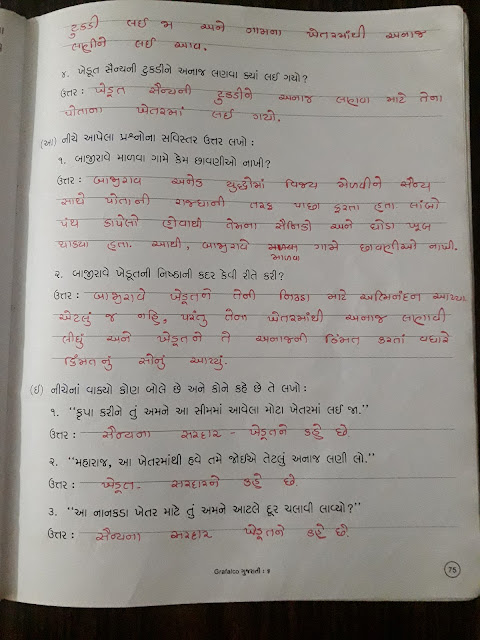 ટુકડી લઈ જા અને ગામના ખેતરમાંથી અનાજ
લણીને લઈ આવ.
૪. ખેડૂત સૈન્યની ટુકડીને અનાજ લણવા ક્યાં લઈ ગયો?
ઉત્તર : ખેડૂત સૈન્યની ટુકડીને અનાજ લણવા માટે તેના
પોતાના ખેતરમાં લઈ ગયો.
(આ) નીચે આપેલા પ્રશ્નોના સવિસ્તર ઉત્તર લખો :
૧. બાજીરાવે માળવા ગામે કેમ છાવણીઓ નાખી?
ઉત્તર : બાજીરાવ અનેક યુદ્ધોમાં વિજય મેળવીને સૈન્ય
સાથે પોતાની રાજધાની તરફ પાછા ફરતા હતા લાંબો
પંથ કાપેલો હોવાથી તેમના સૈનિકો અને ઘોડા ખૂબ
થાક્યા હતા. આથી, બાજીરાવે માળવા ગામે છાવણીઓ નાખી.
માળવા
૨. બાજીરાવે ખેડૂતની નિષ્ઠાની કદર કેવી રીતે કરી?
ઉત્તર : બાજીરાવે ખેડૂતને તેની નિષ્ઠા માટે અભિનંદન આપ્યા
એટલું જ નહિ, પરંતુ તેના ખેતરમાંથી અનાજ લણાવી
લીધું અને ખેડૂતને તે અનાજની કિંમત કરતાં વધારે
કિંમતનું સોનું આપ્યું.
(ઈ) નીચેનાં વાક્યો કોણ બોલે છે અને કોને કહે છે તે લખો :
૧. “કૃપા કરીને તું અમને આ સીમમાં આવેલા મોટા ખેતરમાં લઈ જા.”
ઉત્તર : સૈન્યના સરદાર - ખેડૂતને કહે છે.
૨. “મહારાજ, આ ખેતરમાંથી હવે તમે જોઈએ તેટલું અનાજ લણી લો.”
ઉત્તર : ખેડૂત - સરદારને કહે છે.
૩. “આ નાનકડા ખેતર માટે તું અમને આટલે દૂર ચલાવી લાવ્યો?”
ઉત્તર : સૈન્યના સરદાર ખેડૂતને કહે છે.
Grafalco ગુજરાતી : ૪
75